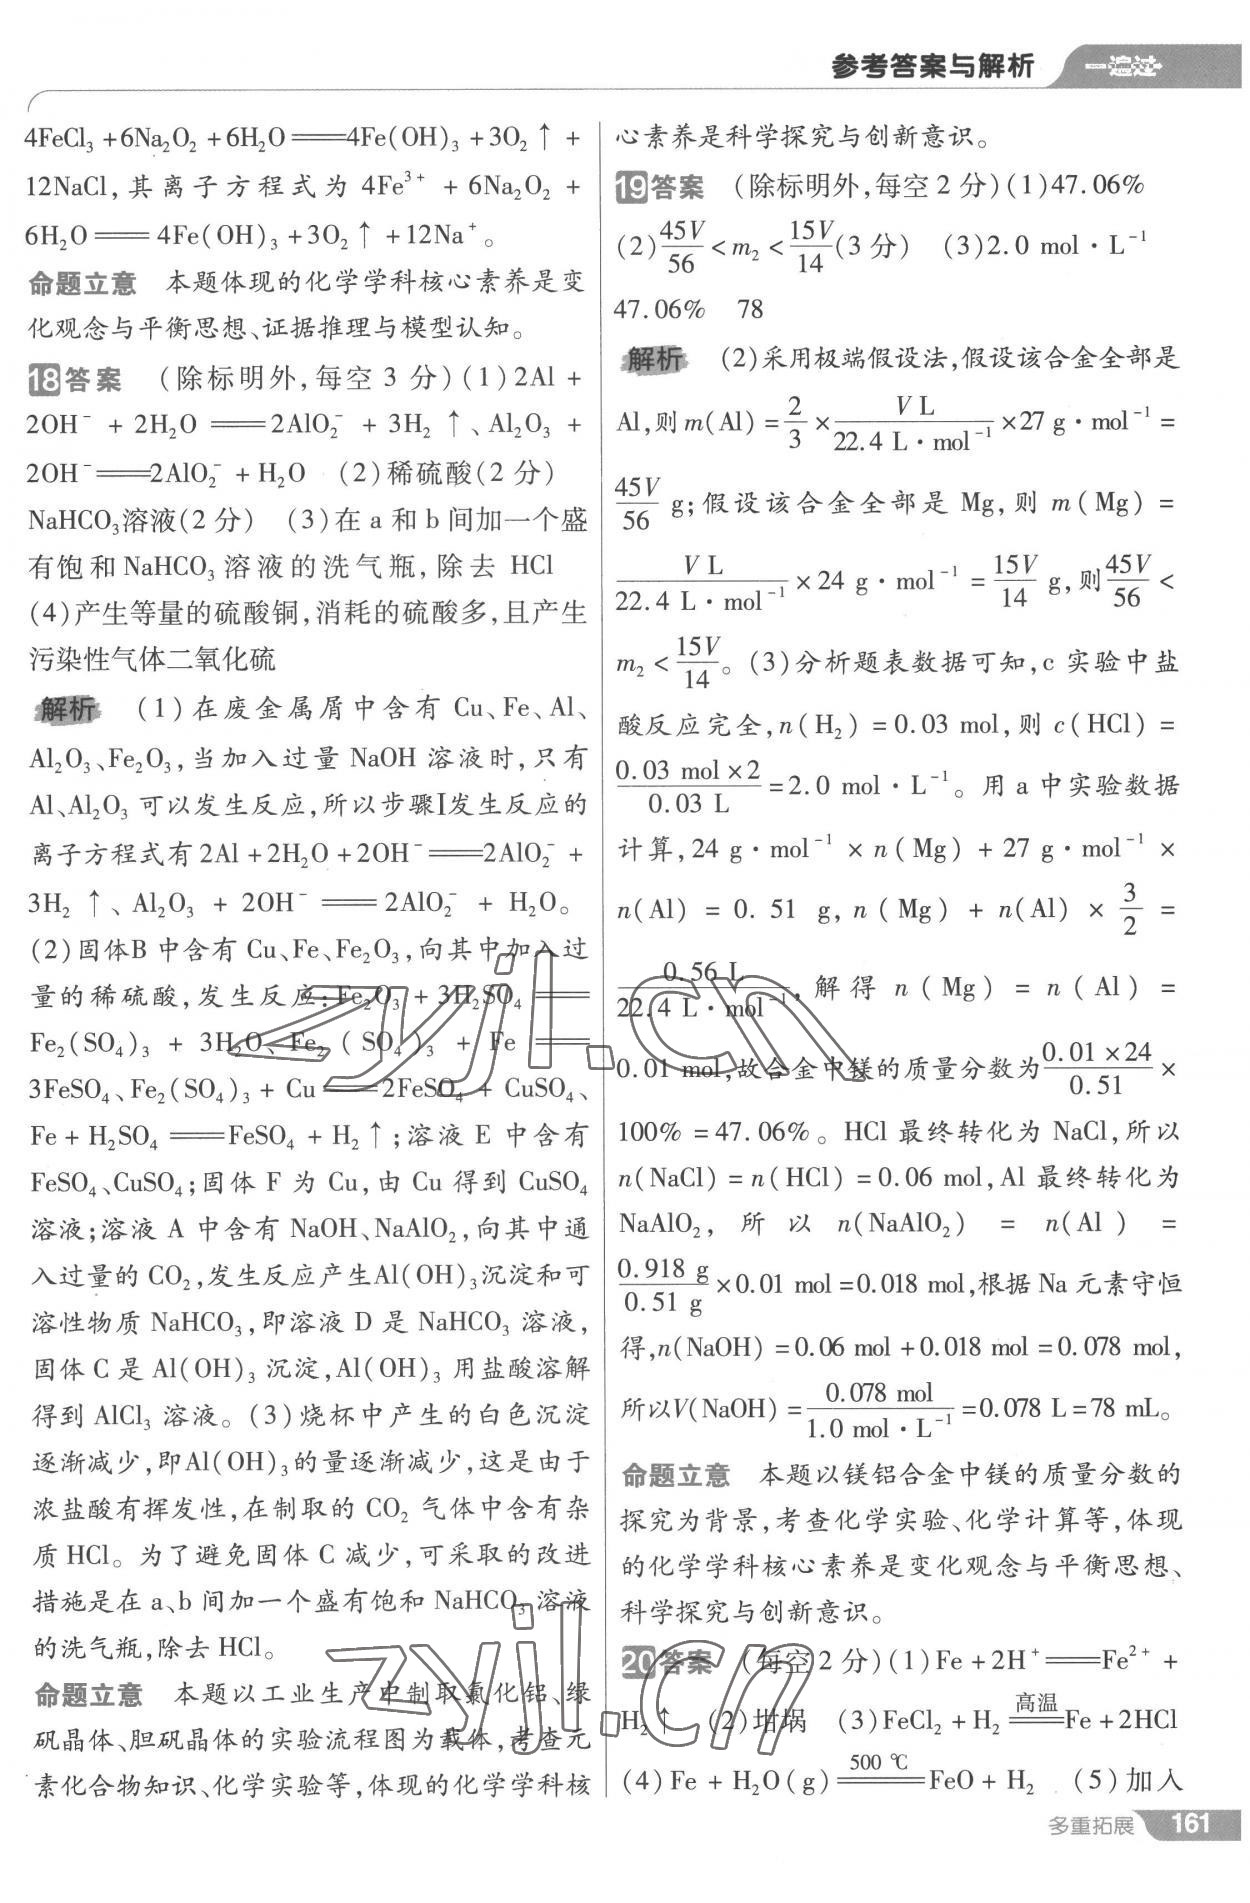 参考答案与解析 一遍过
4FeCl₃ +6Na₂O₂ +6H₂O══4Fe(OH)₃ +3O₂↑ +
12NaCl,其离子方程式为 4Fe³⁺ + 6Na₂O₂ +
6H₂O══ 4Fe(OH)₃ +3O₂↑ +12Na⁺。
命题立意 本题体现的化学学科核心素养是变
化观念与平衡思想、证据推理与模型认知。
18答案 (除标明外,每空 3 分)(1)2Al +
2OH⁻ + 2H₂O ══2AlO₂⁻ + 3H₂ ↑、Al₂O₃ +
2OH⁻══2AlO₂⁻ + H₂O (2)稀硫酸(2 分)
NaHCO₃溶液(2 分) (3)在 a 和 b 间加一个盛
有饱和 NaHCO₃ 溶液的洗气瓶,除去 HCl
(4)产生等量的硫酸铜,消耗的硫酸多,且产生
污染性气体二氧化硫
解析 (1)在废金属屑中含有 Cu、Fe、Al、
Al₂O₃、Fe₂O₃,当加入过量 NaOH 溶液时,只有
Al、Al₂O₃ 可以发生反应,所以步骤Ⅰ发生反应的
离子方程式有 2Al +2H₂O +2OH⁻══2AlO₂⁻ +
3H₂ ↑、Al₂O₃ + 2OH⁻ ══ 2AlO₂⁻ + H₂O。
(2)固体B 中含有 Cu、Fe、Fe₂O₃,向其中加入过
量的稀硫酸,发生反应:Fe₂O₃ + 3H₂SO₄ ══
Fe₂(SO₄)₃ + 3H₂O、Fe₂(SO₄)₃ + Fe ══
3FeSO₄、Fe₂(SO₄)₃ + Cu══2FeSO₄ + CuSO₄、
Fe + H₂SO₄ ══FeSO₄ + H₂↑;溶液 E 中含有
FeSO₄、CuSO₄;固体 F 为 Cu,由 Cu 得到 CuSO₄
溶液;溶液 A 中含有 NaOH、NaAlO₂,向其中通
入过量的 CO₂,发生反应产生Al(OH)₃沉淀和可
溶性物质 NaHCO₃,即溶液 D 是 NaHCO₃ 溶液,
固体 C 是 Al(OH)₃ 沉淀,Al(OH)₃ 用盐酸溶解
得到 AlCl₃ 溶液。(3)烧杯中产生的白色沉淀
逐渐减少,即Al(OH)₃的量逐渐减少,这是由于
浓盐酸有挥发性,在制取的 CO₂ 气体中含有杂
质 HCl。为了避免固体 C 减少,可采取的改进
措施是在 a、b 间加一个盛有饱和 NaHCO₃ 溶液
的洗气瓶,除去 HCl。
命题立意 本题以工业生产中制取氯化铝、绿
矾晶体、胆矾晶体的实验流程图为载体,考查元
素化合物知识、化学实验等,体现的化学学科核
心素养是科学探究与创新意识。
19答案 (除标明外,每空 2 分)(1)47.06%
(2)45V/56 < m₂ < 15V/14(3 分) (3)2.0 mol·L⁻¹
47.06% 78
解析 (2)采用极端假设法,假设该合金全部是
Al,则 m(Al) = 2/3 × V L/22.4 L·mol⁻¹ ×27 g·mol⁻¹ =
45V/56 g;假设该合金全部是 Mg,则 m(Mg) =
V L/22.4 L·mol⁻¹ ×24 g·mol⁻¹ = 15V/14 g,则45V/56 <
m₂ < 15V/14。(3)分析题表数据可知,c 实验中盐
酸反应完全,n(H₂) =0.03 mol,则 c(HCl) =
0.03 mol×2/0.03 L =2.0 mol·L⁻¹。用 a 中实验数据
计算,24 g·mol⁻¹ × n(Mg) + 27 g·mol⁻¹ ×
n(Al) = 0.51 g,n(Mg) + n(Al) × 3/2 =
0.56 L/22.4 L·mol⁻¹,解得 n(Mg) = n(Al) =
0.01 mol,故合金中镁的质量分数为0.01×24/0.51 ×
100% =47.06%。HCl 最终转化为 NaCl,所以
n(NaCl) = n(HCl) =0.06 mol,Al 最终转化为
NaAlO₂,所以 n(NaAlO₂) = n(Al) =
0.918 g/0.51 g ×0.01 mol =0.018 mol,根据 Na 元素守恒
得,n(NaOH) =0.06 mol +0.018 mol =0.078 mol,
所以V(NaOH) = 0.078 mol/1.0 mol·L⁻¹ =0.078 L =78 mL。
命题立意 本题以镁铝合金中镁的质量分数的
探究为背景,考查化学实验、化学计算等,体现
的化学学科核心素养是变化观念与平衡思想、
科学探究与创新意识。
20答案 (每空2 分)(1)Fe +2H⁺══Fe²⁺ +
H₂↑ (2)坩埚 (3)FeCl₂ + H₂ ═高温═ Fe +2HCl
(4)Fe + H₂O(g) ═500 ℃═ FeO + H₂ (5)加入
多重拓展 161
zyjl.cn
zyjl.cn